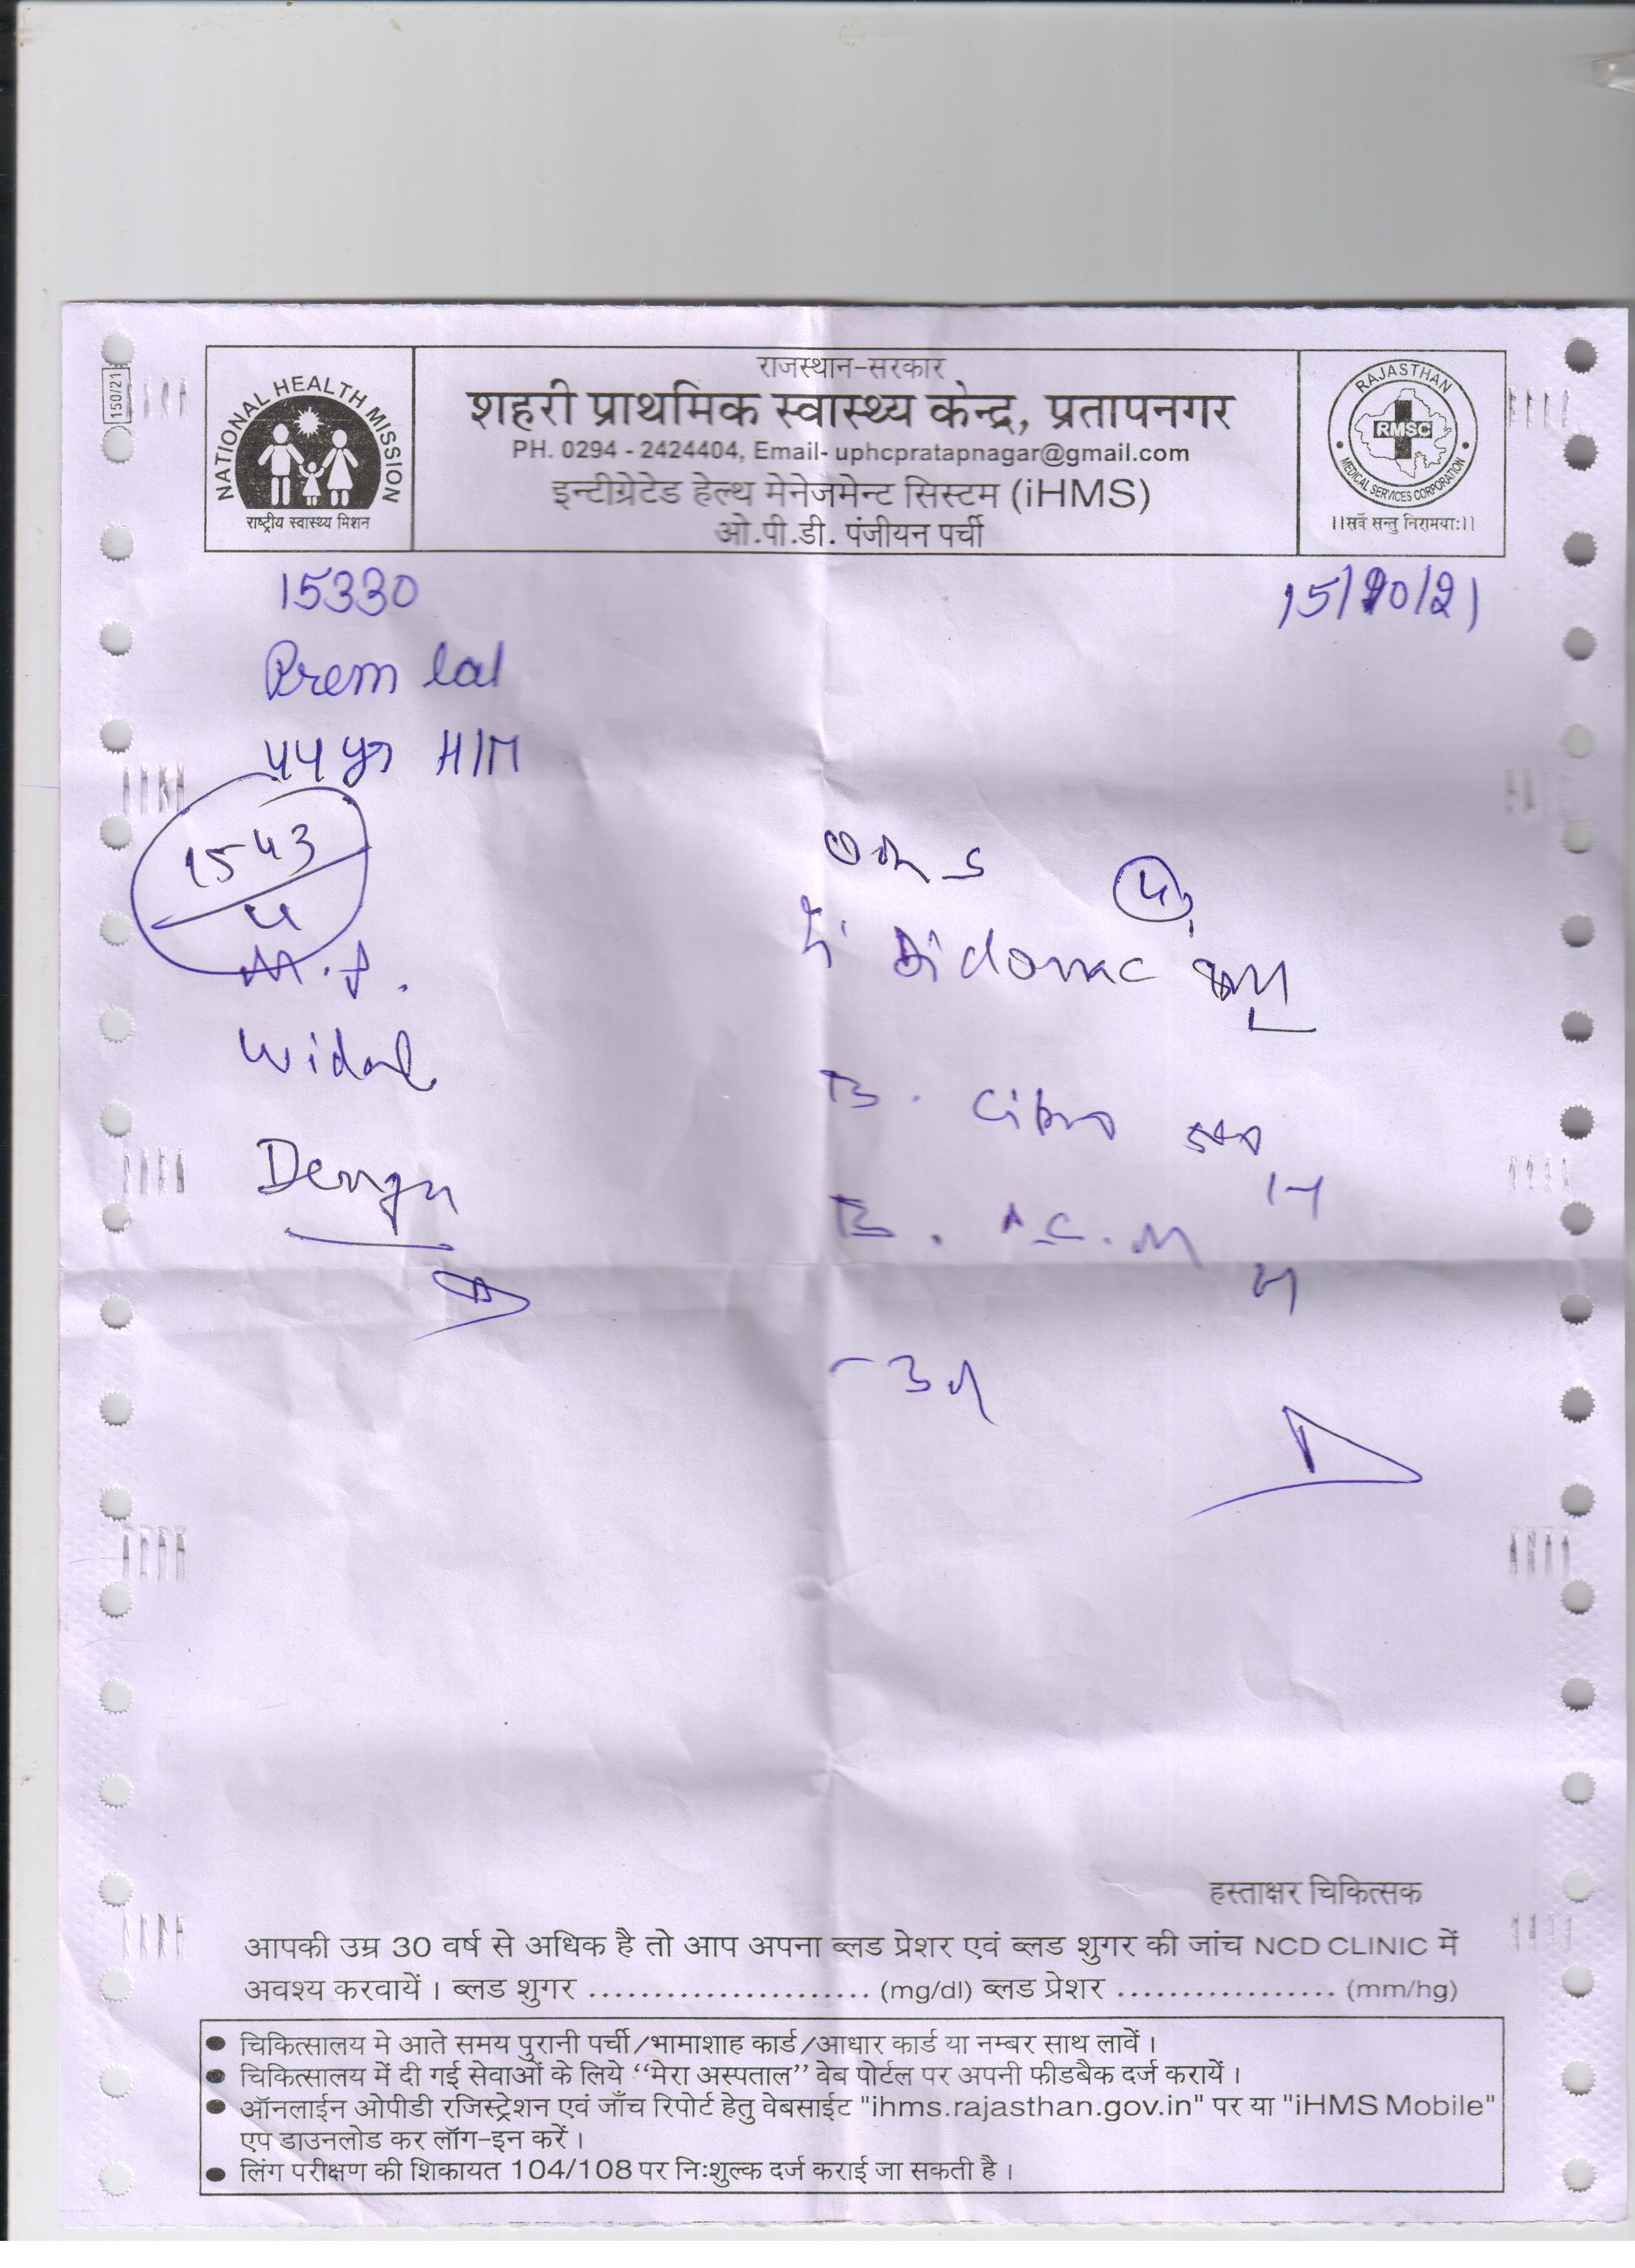 150/21
NATIONAL HEALTH MISSION
राष्ट्रीय स्वास्थ्य मिशन
राजस्थान-सरकार
शहरी प्राथमिक स्वास्थ्य केन्द्र, प्रतापनगर
PH. 0294 - 2424404, Email- uphcpratapnagar@gmail.com
इन्टीग्रेटेड हेल्थ मेनेजमेन्ट सिस्टम (iHMS)
ओ.पी.डी. पंजीयन पर्ची
RAJASTHAN
RMSC
MEDICAL SERVICES CORPORATION
।।सर्वे सन्तु निरामयाः।।
15330
15/10/21
Prem lal
H/M
1543
M.P.
Widal
Dengu
हस्ताक्षर चिकित्सक
आपकी उम्र 30 वर्ष से अधिक है तो आप अपना ब्लड प्रेशर एवं ब्लड शुगर की जांच NCD CLINIC में
अवश्य करवायें। ब्लड शुगर ........................ (mg/dl) ब्लड प्रेशर .................. (mm/hg)
● चिकित्सालय मे आते समय पुरानी पर्ची/भामाशाह कार्ड/आधार कार्ड या नम्बर साथ लावें।
● चिकित्सालय में दी गई सेवाओं के लिये "मेरा अस्पताल" वेब पोर्टल पर अपनी फीडबैक दर्ज करायें।
● ऑनलाईन ओपीडी रजिस्ट्रेशन एवं जाँच रिपोर्ट हेतु वेबसाईट "ihms.rajasthan.gov.in" पर या "iHMS Mobile"
एप डाउनलोड कर लॉग-इन करें।
● लिंग परीक्षण की शिकायत 104/108 पर निःशुल्क दर्ज कराई जा सकती है।